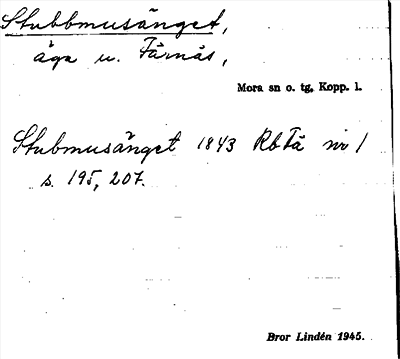 Stubbmusänget,
äga u. Färnäs,
Mora sn o. tg, Kopp. l.
Stubmusänget 1843 RbFä nr 1
s. 195, 207.
Bror Lindén 1945.